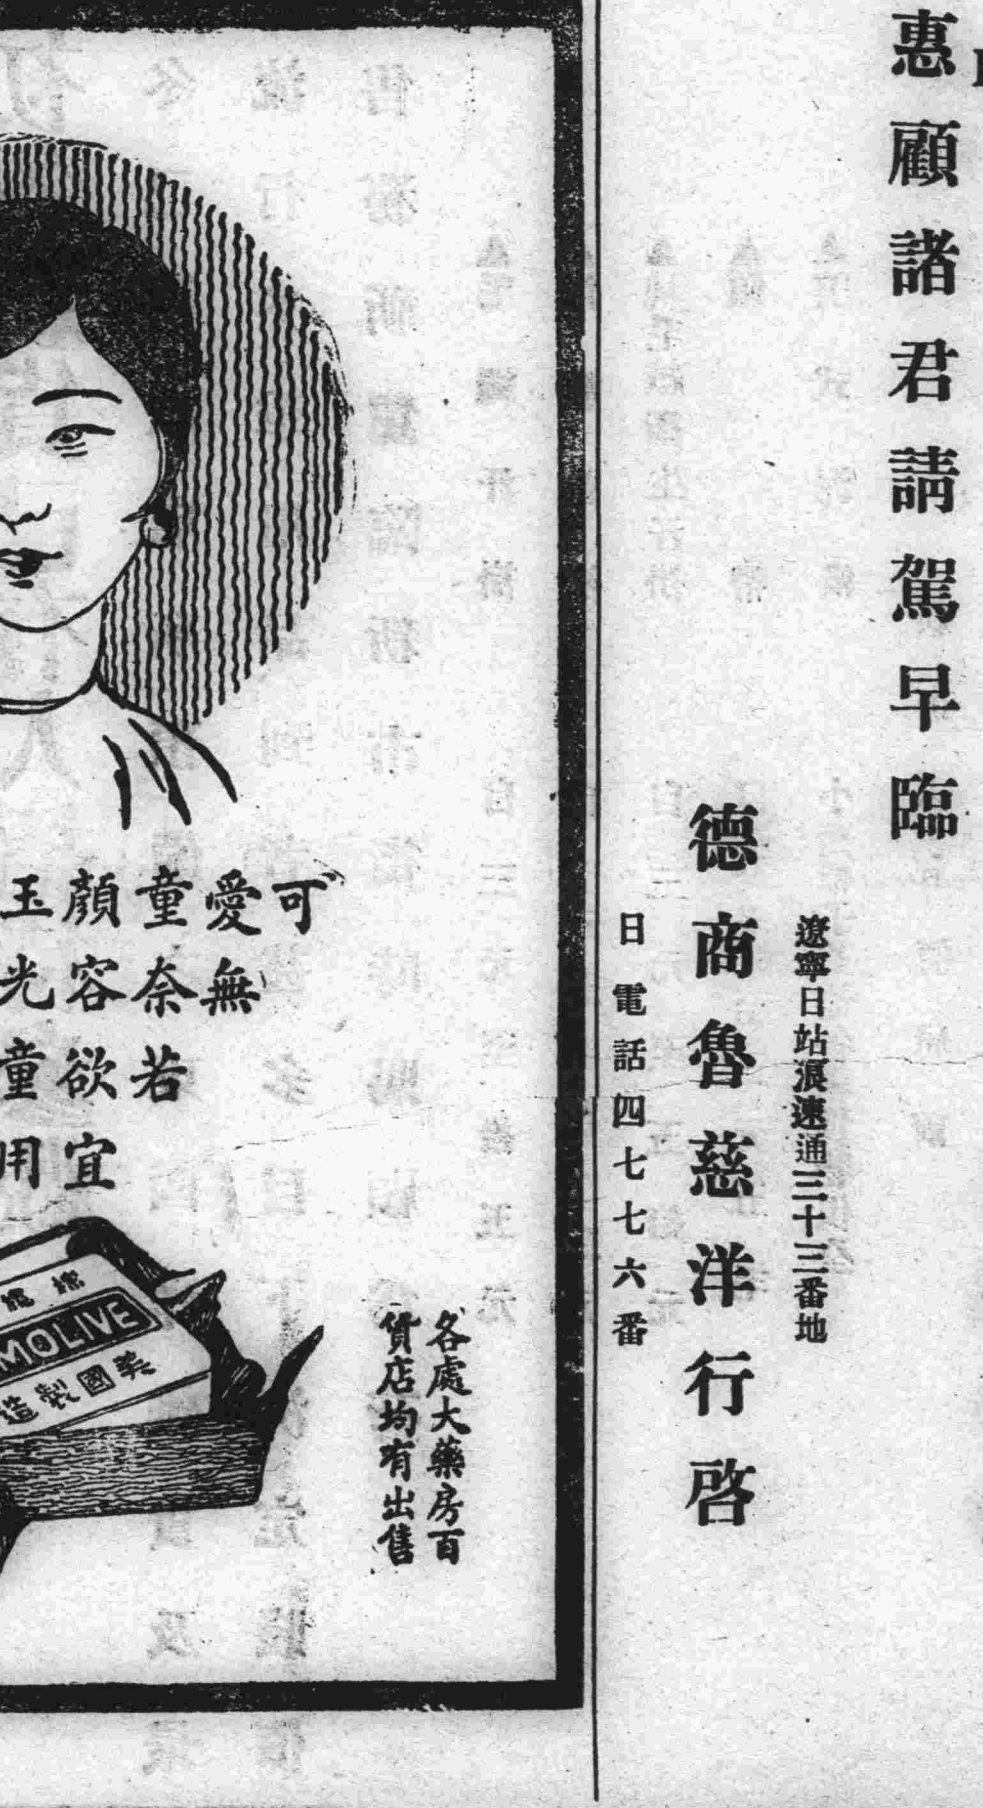 惠顧諸君請駕早臨
遼寧日站浪速通三十三番地
德商魯慈洋行啓
日電話四七七六番
可愛童顏玉
無奈容光
若欲童
宜用
各處大藥房百
貨店均有出售
MOLIVE
美國製造